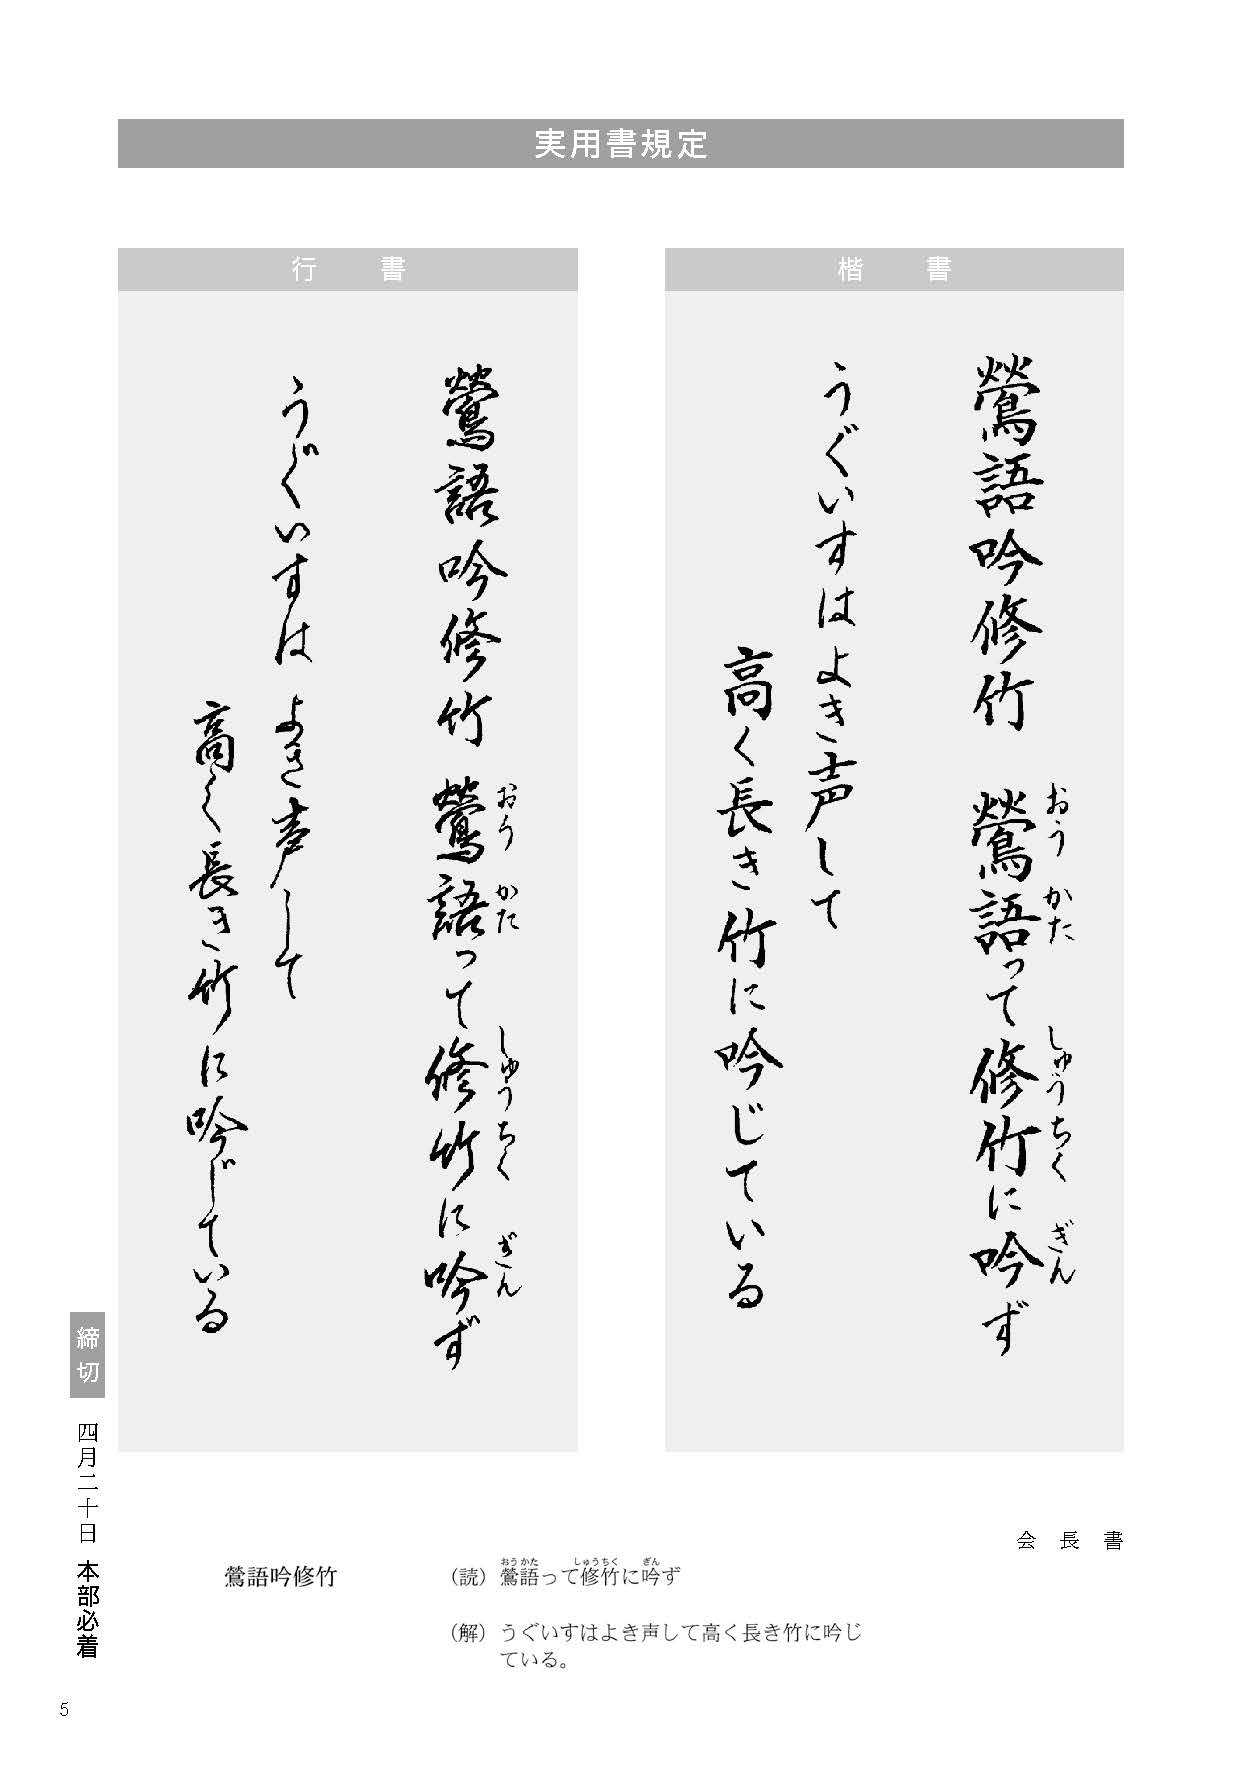 実用書規定
楷書
鶯語吟修竹 鶯語って修竹に吟ず
おう かた しゅうちく ぎん
うぐいすはよき声して
高く長き竹に吟じている
行書
鶯語吟修竹 鶯語って修竹に吟ず
おう かた しゅうちく ぎん
うぐいすはよき声して
高く長き竹に吟じている
締切 四月二十日 本部必着
会長書
鶯語吟修竹
おうかた しゅうちく ぎん
（読）鶯語って修竹に吟ず
（解）うぐいすはよき声して高く長き竹に吟じ
ている。
5